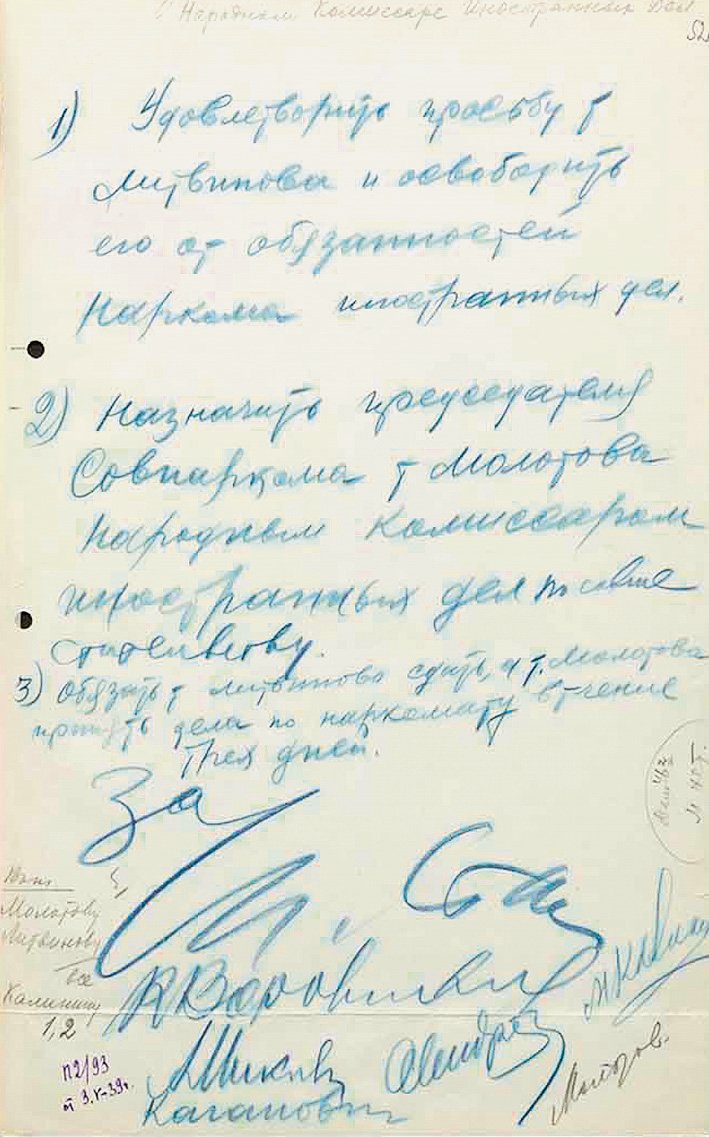 О Народном Комиссаре Иностранных Дел
52
1) Удовлетворить просьбу т
Литвинова и освободить
его от обязанностей
Наркома иностранных дел.
2) Назначить председателя
Совнаркома т Молотова
Народным Комиссаром
иностранных дел по совме
стительству.
3) Обязать т Литвинова сдать, а т. Молотова
принять дела по наркомату в течение
трех дней.
За
И. Ст
К Ворошилов
А Микоян
Каганович
Молотов.
Молотову
Литвинову
все
Калинину
1,2
П2/93
от 3.V-39г.